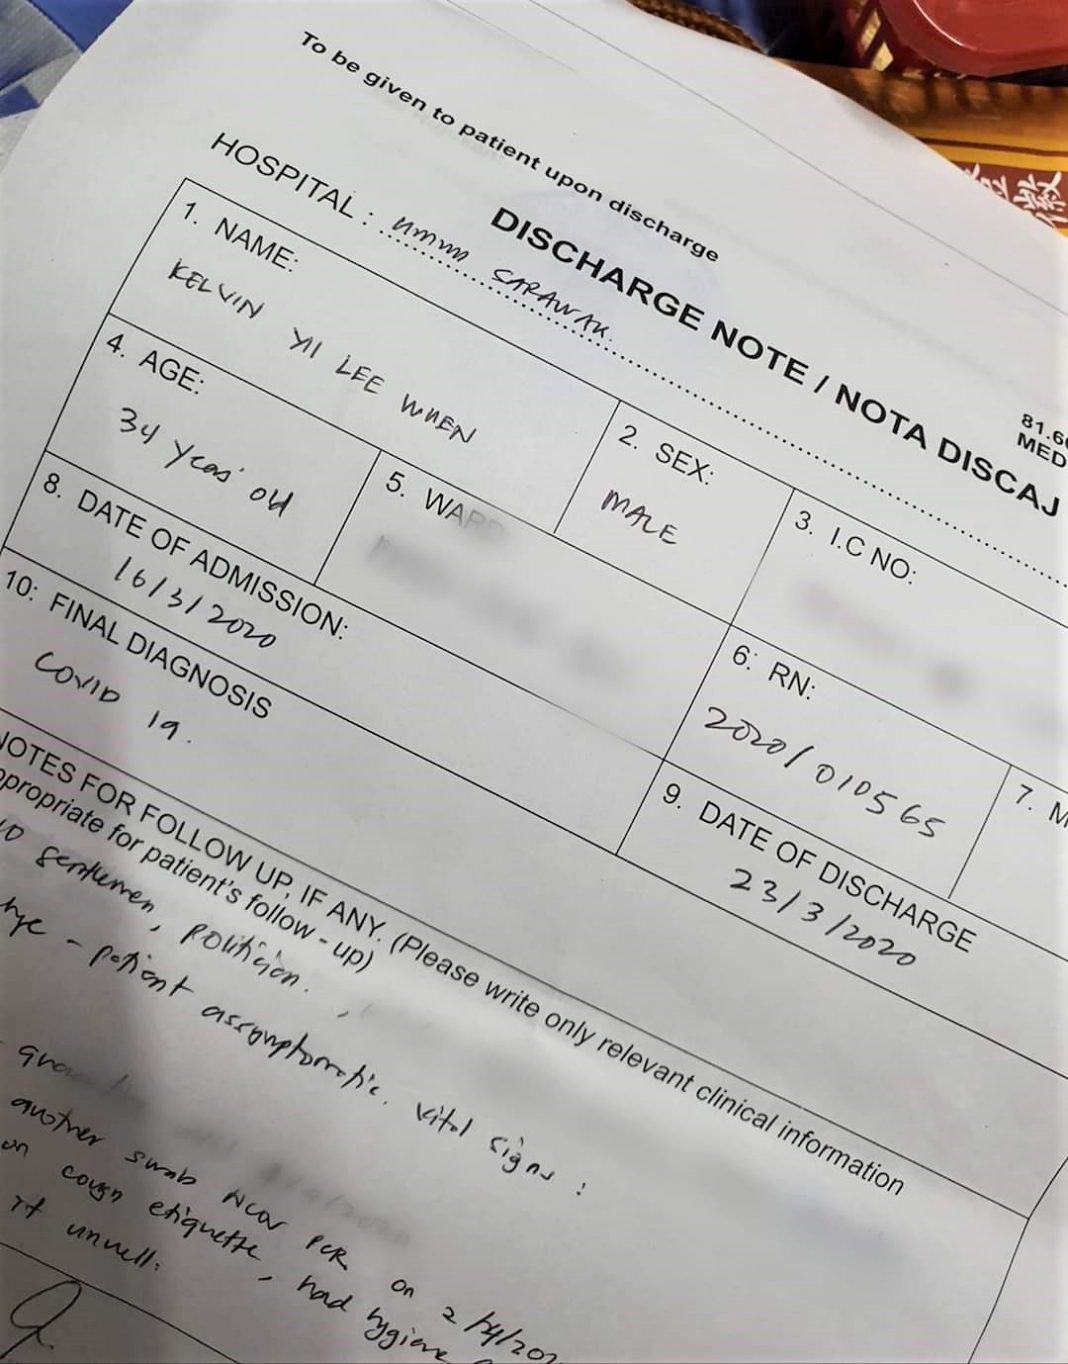 To be given to patient upon discharge
DISCHARGE NOTE / NOTA DISCAJ
81.6
MED
HOSPITAL : umum SARAWAK
1. NAME:
KELVIN YII LEE WUEN
2. SEX:
MALE
3. I.C NO:
4. AGE:
34 years old
5. WARD
6: RN:
2020/010565
7. M
8. DATE OF ADMISSION:
16/3/2020
9. DATE OF DISCHARGE
23/3/2020
10: FINAL DIAGNOSIS
COVID 19.
NOTES FOR FOLLOW UP, IF ANY. (Please write only relevant clinical information
appropriate for patient's follow - up)
gentlemen, politician.
- patient assymptomatic. vital signs :
another swab nCov PCR on 2/4/202
on cough etiquette, hand hygiene
if unwell.
徽